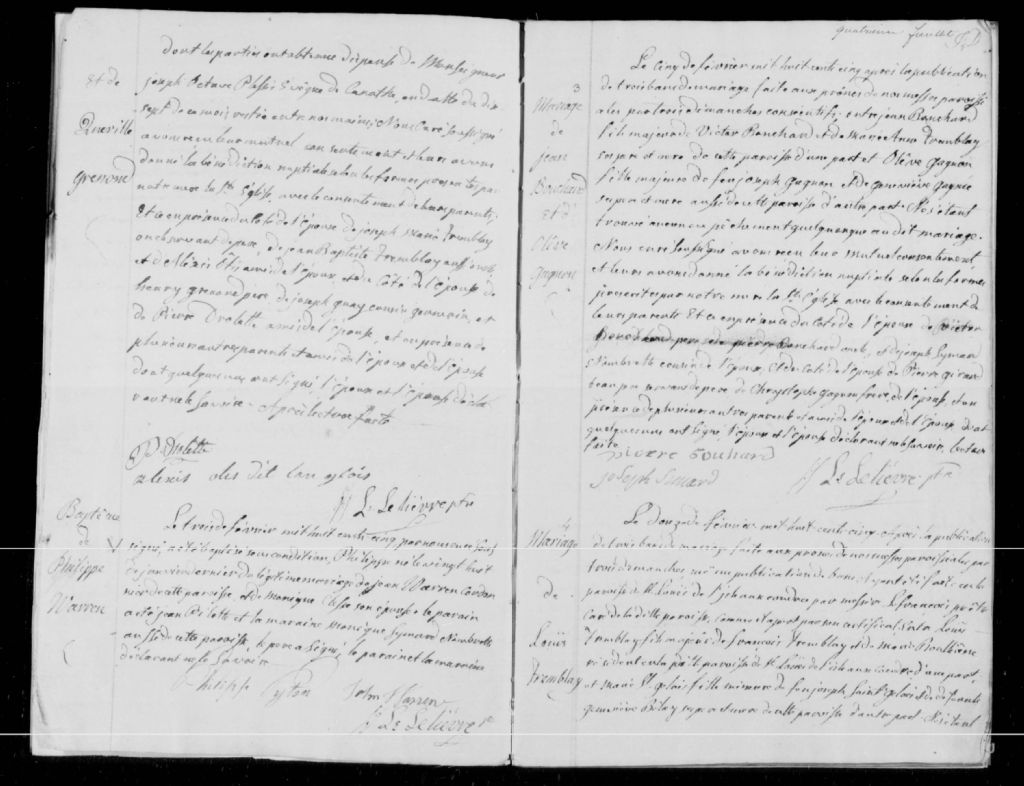 Et de
Queville
Grenond
dont les parties ont obtenue dispense de Monseigneur
joseph Octave Plessis Evêque de Canathe, en datte du dix
sept de ce mois, restée entre nos mains; Nous Curé soussigné
avons reçu leur mutuel consentement et leur avons
donné la bénédiction nuptiale selon les formes prescrites par
notre mere la Ste Eglise, avec le consentement de leurs parents;
Et ce en présence du Coté de l'époux de joseph Marie Tremblay
oncle servant de pere, de jean Baptiste Tremblay aussi oncle,
et de Alexis Olis ami de l'époux, et du Côté de l'épouse de
henry grenond pere de joseph guay cousin germain, et
de Pierre Drolette ami de l'épouse, et en présence de
plusieurs autres parents et amis de l'époux et de l'épouse
dont quelques uns ont signé l'époux et l'épouse décla
rant ne le savoir. Après lecture faite
P Drolette
alexis oles dit lan glois
Ls Lelièvre ptre
Baptême
de
Philippe
Warren
Le trois de février mil huit cents cinq par nous curé sous
signé, a été baptisé sous condition, Philippe né le vingt huit
de janvier dernier du légitime mariage de jean Warren Cordon
nier de cette paroisse, et de Monique son épouse le parain
a été jean Pilote et la maraine Monique Symard
aussi de cette paroisse le pere a signé, le parain et la maraine
déclarant ne le savoir
John Warren
Ls Lelièvre
quatrieme feuillet
3
Mariage
de
jean
Bouchard
et d'
Olive
Gagnon
Le Cinq de février mil huit cents cinq après la publication
de trois bans de mariage faite aux prônes de nos messes paroissi
ales par trois dimanches consécutifs; entre jean Bouchard
fils majeur de Victor Bouchard et de Marie Anne Tremblay
ses pere et mere de cette paroisse d'une part et Olive Gagnon
fille majeure de feu joseph Gagnon et de Genevieve Gagné
ses pere et mere aussi de cette paroisse d'autre part. Ne s'étant
trouvé aucun empêchement quelquonque au dit mariage.
Nous curé soussigné avons recu leur mutuel consentement
et leur avons donné la bénédiction nuptiale selon les formes
prescrites par notre mere la Ste Eglise avec le consentement de
leurs parents Et ce en présence du Coté de l'époux de Victor
Bouchard pere de pierre Bouchard oncle, et de joseph Symard
cousin de l'époux, et du coté de l'épouse de Pierre girard
beau pere servant de pere de Chrysostophe gagnon frere de l'épouse, et en
présence de plusieurs autres parents et amis de l'époux et de l'épouse dont
quelques uns ont signé, l'époux et l'épouse déclarant ne le savoir, lecture
faite
pierre bouhard
joseph simard
Ls Lelièvre ptre
4
Mariage
de
Louis
Tremblay
Le Douze de février mil huit cents cinq après la publication
de trois bans de mariage faite aux prones de nos messes paroissiales par
trois dimanches même publication de bans ayant été faite en la
paroisse de St Louis de l'isle aux coudres par messire Lefrancois prêtre
Curé de la dite paroisse, comme il apert par son certificat entre Louis
Tremblay fils majeur de François Tremblay et de Marie Bouthiere
résident en la paroisse de St Louis de l'isle aux coudres d'une part,
et Marie St gelais fille mineure de feu joseph Saint gelais et de
genevieve Bolay ses pere et mere de cette paroisse d'autre part. Ne s'étant